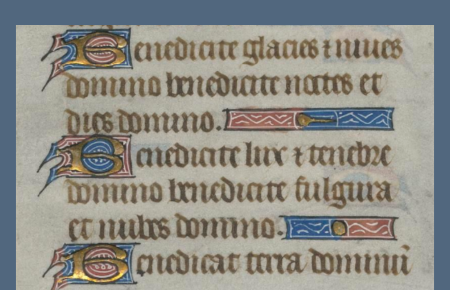 Benedicite glacies ⁊ niues
domino benedicite noctes et
dies domino.
Benedicite lux ⁊ tenebre
domino benedicite fulgura
et nubes domino.
Benedicat terra dominū